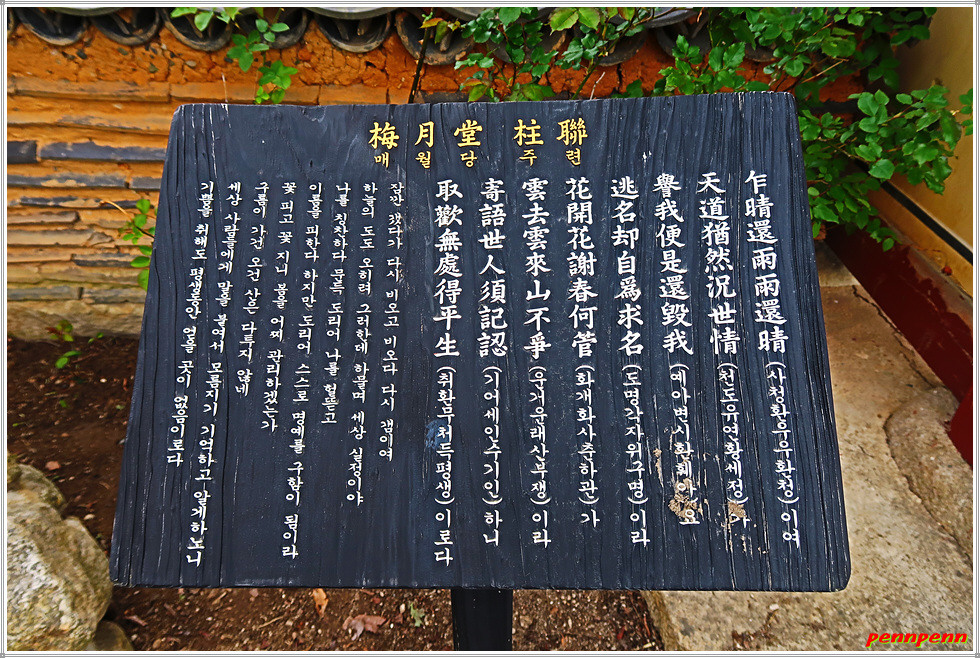 梅月堂 柱聯
매월당 주련
乍晴還雨雨還晴(사청환우우환청)이여
天道猶然況世情(천도유연황세정)가
譽我便是還毀我(예아변시환훼아)요
逃名却自爲求名(도명각자위구명)이라
花開花謝春何管(화개화사춘하관)가
雲去雲來山不爭(운거운래산부쟁)이라
寄語世人須記認(기어세인수기인)하니
取歡無處得平生(취환무처득평생)이로다
잠깐 갰다가 다시 비오고 비오다 다시 갬이여
하늘의 도도 오히려 그러한데 하물며 세상 실정이야
나를 칭찬하다 문득 도리어 나를 헐뜯고
이름을 피한다 하지만 도리어 스스로 명예를 구함이 됨이라
꽃 피고 꽃 지니 봄을 어찌 관리하겠는가
구름이 가건 오건 산은 다투지 않네
세상 사람들에게 말을 붙여서 모름지기 기억하고 알게하노니
기쁨을 취해도 평생동안 얻을 곳이 없음이로다
pennpenn